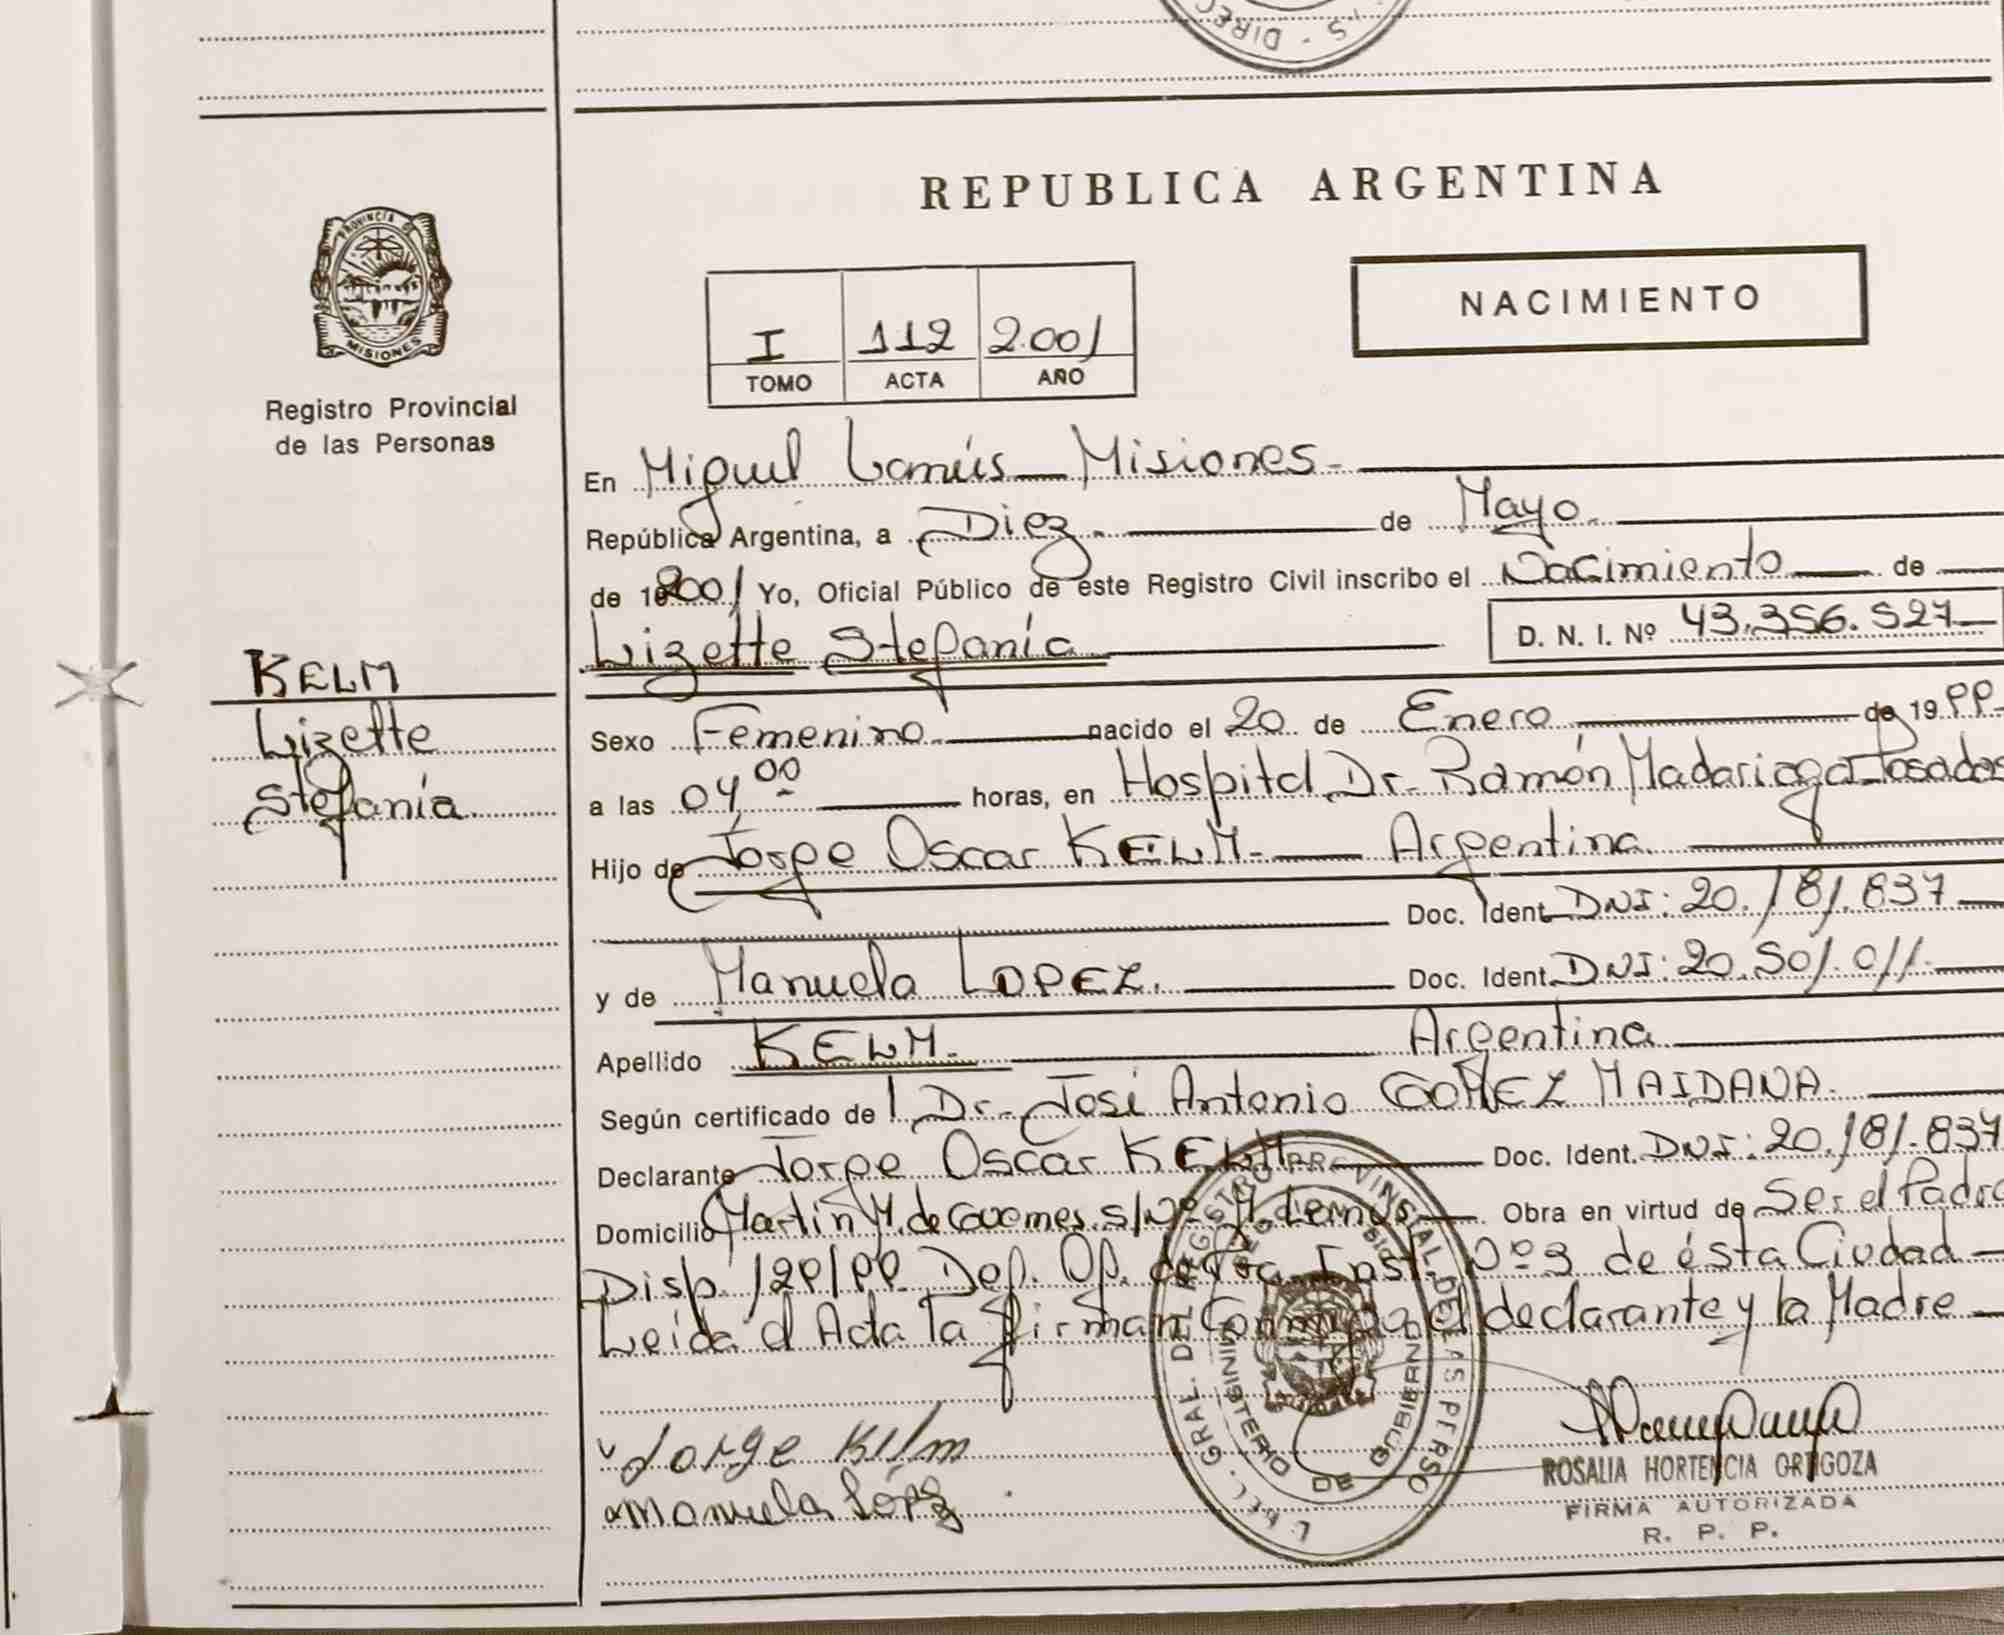 S - DIREC
REPUBLICA ARGENTINA
PROVINCIA DE
MISIONES
Registro Provincial
de las Personas
I 112 2.001
TOMO ACTA AÑO
NACIMIENTO
En Miguel Lanús Misiones
República Argentina, a Diez de Mayo
de 2001 Yo, Oficial Público de este Registro Civil inscribo el Nacimiento de
Lizette Stefanía D. N. I. Nº 43.356.527
KELM
Lizette
Stefanía
Sexo Femenino nacido el 20 de Enero de 1999
a las 04,00 horas, en Hospital Dr. Ramón Madariaga Posadas
Hijo de Jorge Oscar KELM. Argentina
Doc. Ident. DNI: 20.181.837
y de Manuela LOPEZ. Doc. Ident. DNI: 20.501.011.
Apellido KELM. Argentina
Según certificado de Dr. José Antonio GOMEZ MAIDANA.
Declarante Jorge Oscar KELM Doc. Ident. DNI: 20.181.837
Domicilio Martín M. de Güemes s/Nº M. Lanús Obra en virtud de Ser el Padre
Disp. 129/99 Def. Of. de Inst. Nº 3 de ésta Ciudad
Leida el Acta la firman Conmigo el declarante y la Madre
Jorge Kelm
Manuela López
DIREC. GRAL. DEL REGISTRO PROVINCIAL DE LAS PERSO
MINISTERIO DE GOBIERNO
ROSALIA HORTENCIA ORTIGOZA
FIRMA AUTORIZADA
R. P. P.